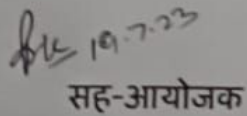 19.7.23
सह-आयोजक